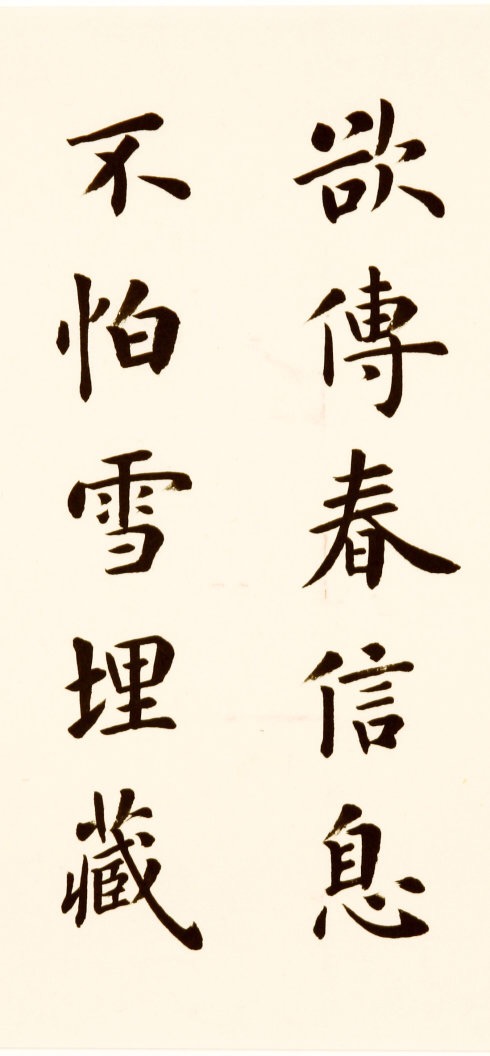 欲傳春信息
不怕雪埋藏